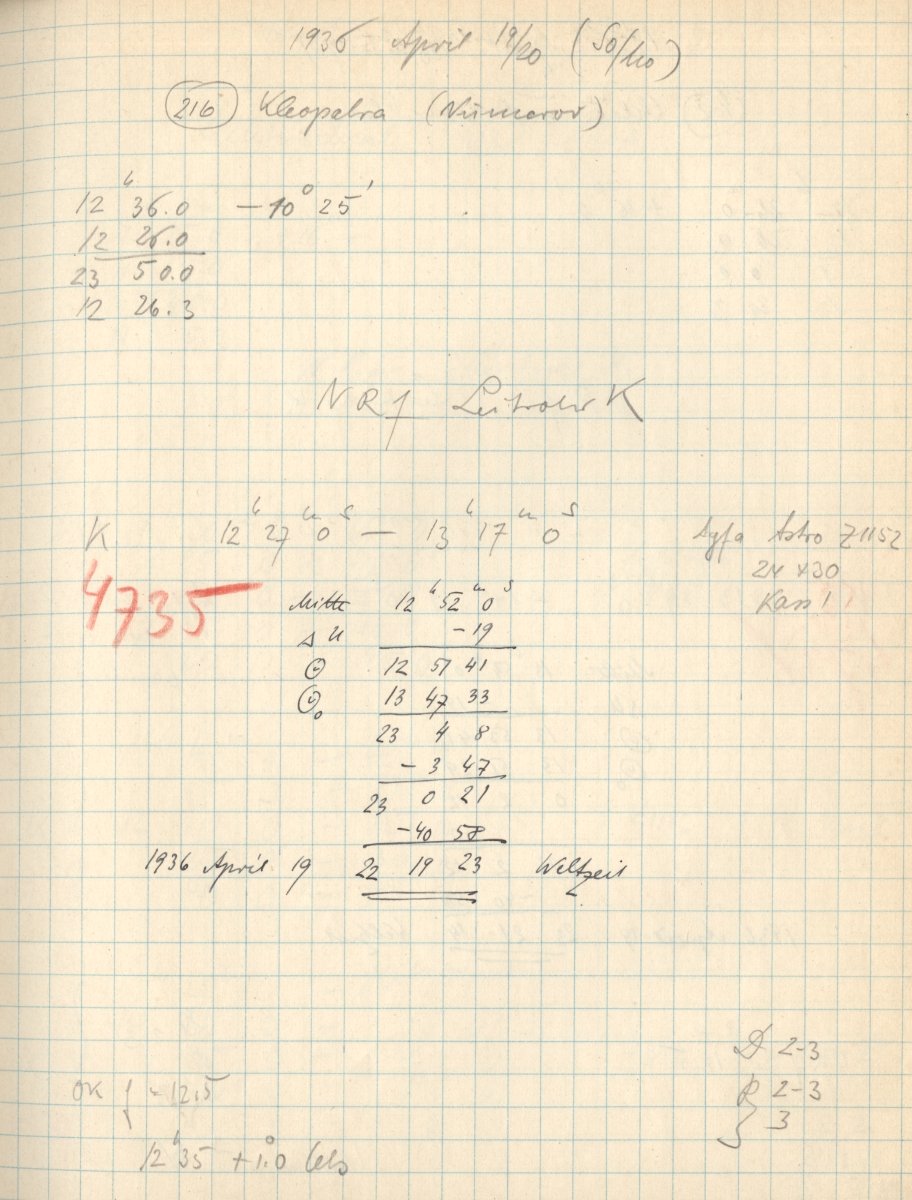 1936 April 19/20 (So/Mo)
216 Kleopatra (Numerov)
12ʰ 36.0 −10° 25'
12 26.0
23 50.0
12 26.3
NR 1 Leitrohr K
K 12ʰ 27ᵐ 0ˢ — 13ʰ 17ᵐ 0ˢ Agfa Astro Z1152
24 x 30
Kass 1
4735
Mitte 12ʰ 52ᵐ 0ˢ
Δu −19
⊙ 12 51 41
⊙₀ 13 47 33
23 4 8
−3 47
23 0 21
−40 58
1936 April 19 22 19 23 Weltzeit
D 2-3
OK { -12.5 R 2-3
3
12ʰ35 +1.°0 Cels